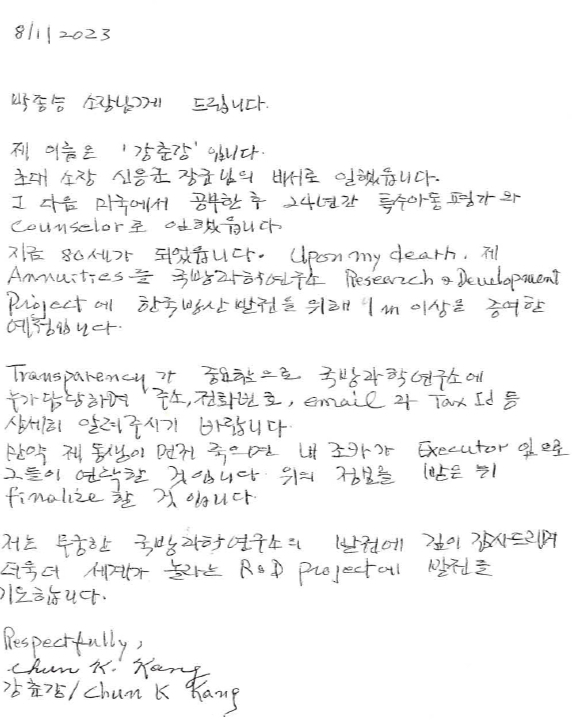 8/1/2023
박종승 소장님께 드립니다.
제 이름은 '강춘강' 입니다.
초대 소장 신응균 장군님의 비서로 일했읍니다.
그 다음 미국에서 공부한 후 24년간 특수아동 평가와
Counselor로 일했읍니다
지금 80세가 되었읍니다. Upon my death, 제
Annuities를 국방과학연구소 Research & Development
Project에 한국방산 발전을 위해 1m 이상을 증여할
예정입니다.
Transparency가 중요함으로 국방과학연구소에
누가 담당하며 주소, 전화번호, email과 Tax Id 등
상세히 알려주시기 바랍니다
만약 제 동생이 먼저 죽으면 내 조카가 Executor 임으로
그들이 연락할 것입니다. 위의 정보를 받은 뒤
finalize 할 것입니다.
저는 무궁한 국방과학연구소의 발전에 깊이 감사드리며
더욱더 세계가 놀라는 R&D project에 발전을
기도합니다.
Respectfully,
Chun K. Kang
강춘강/Chun K Kang